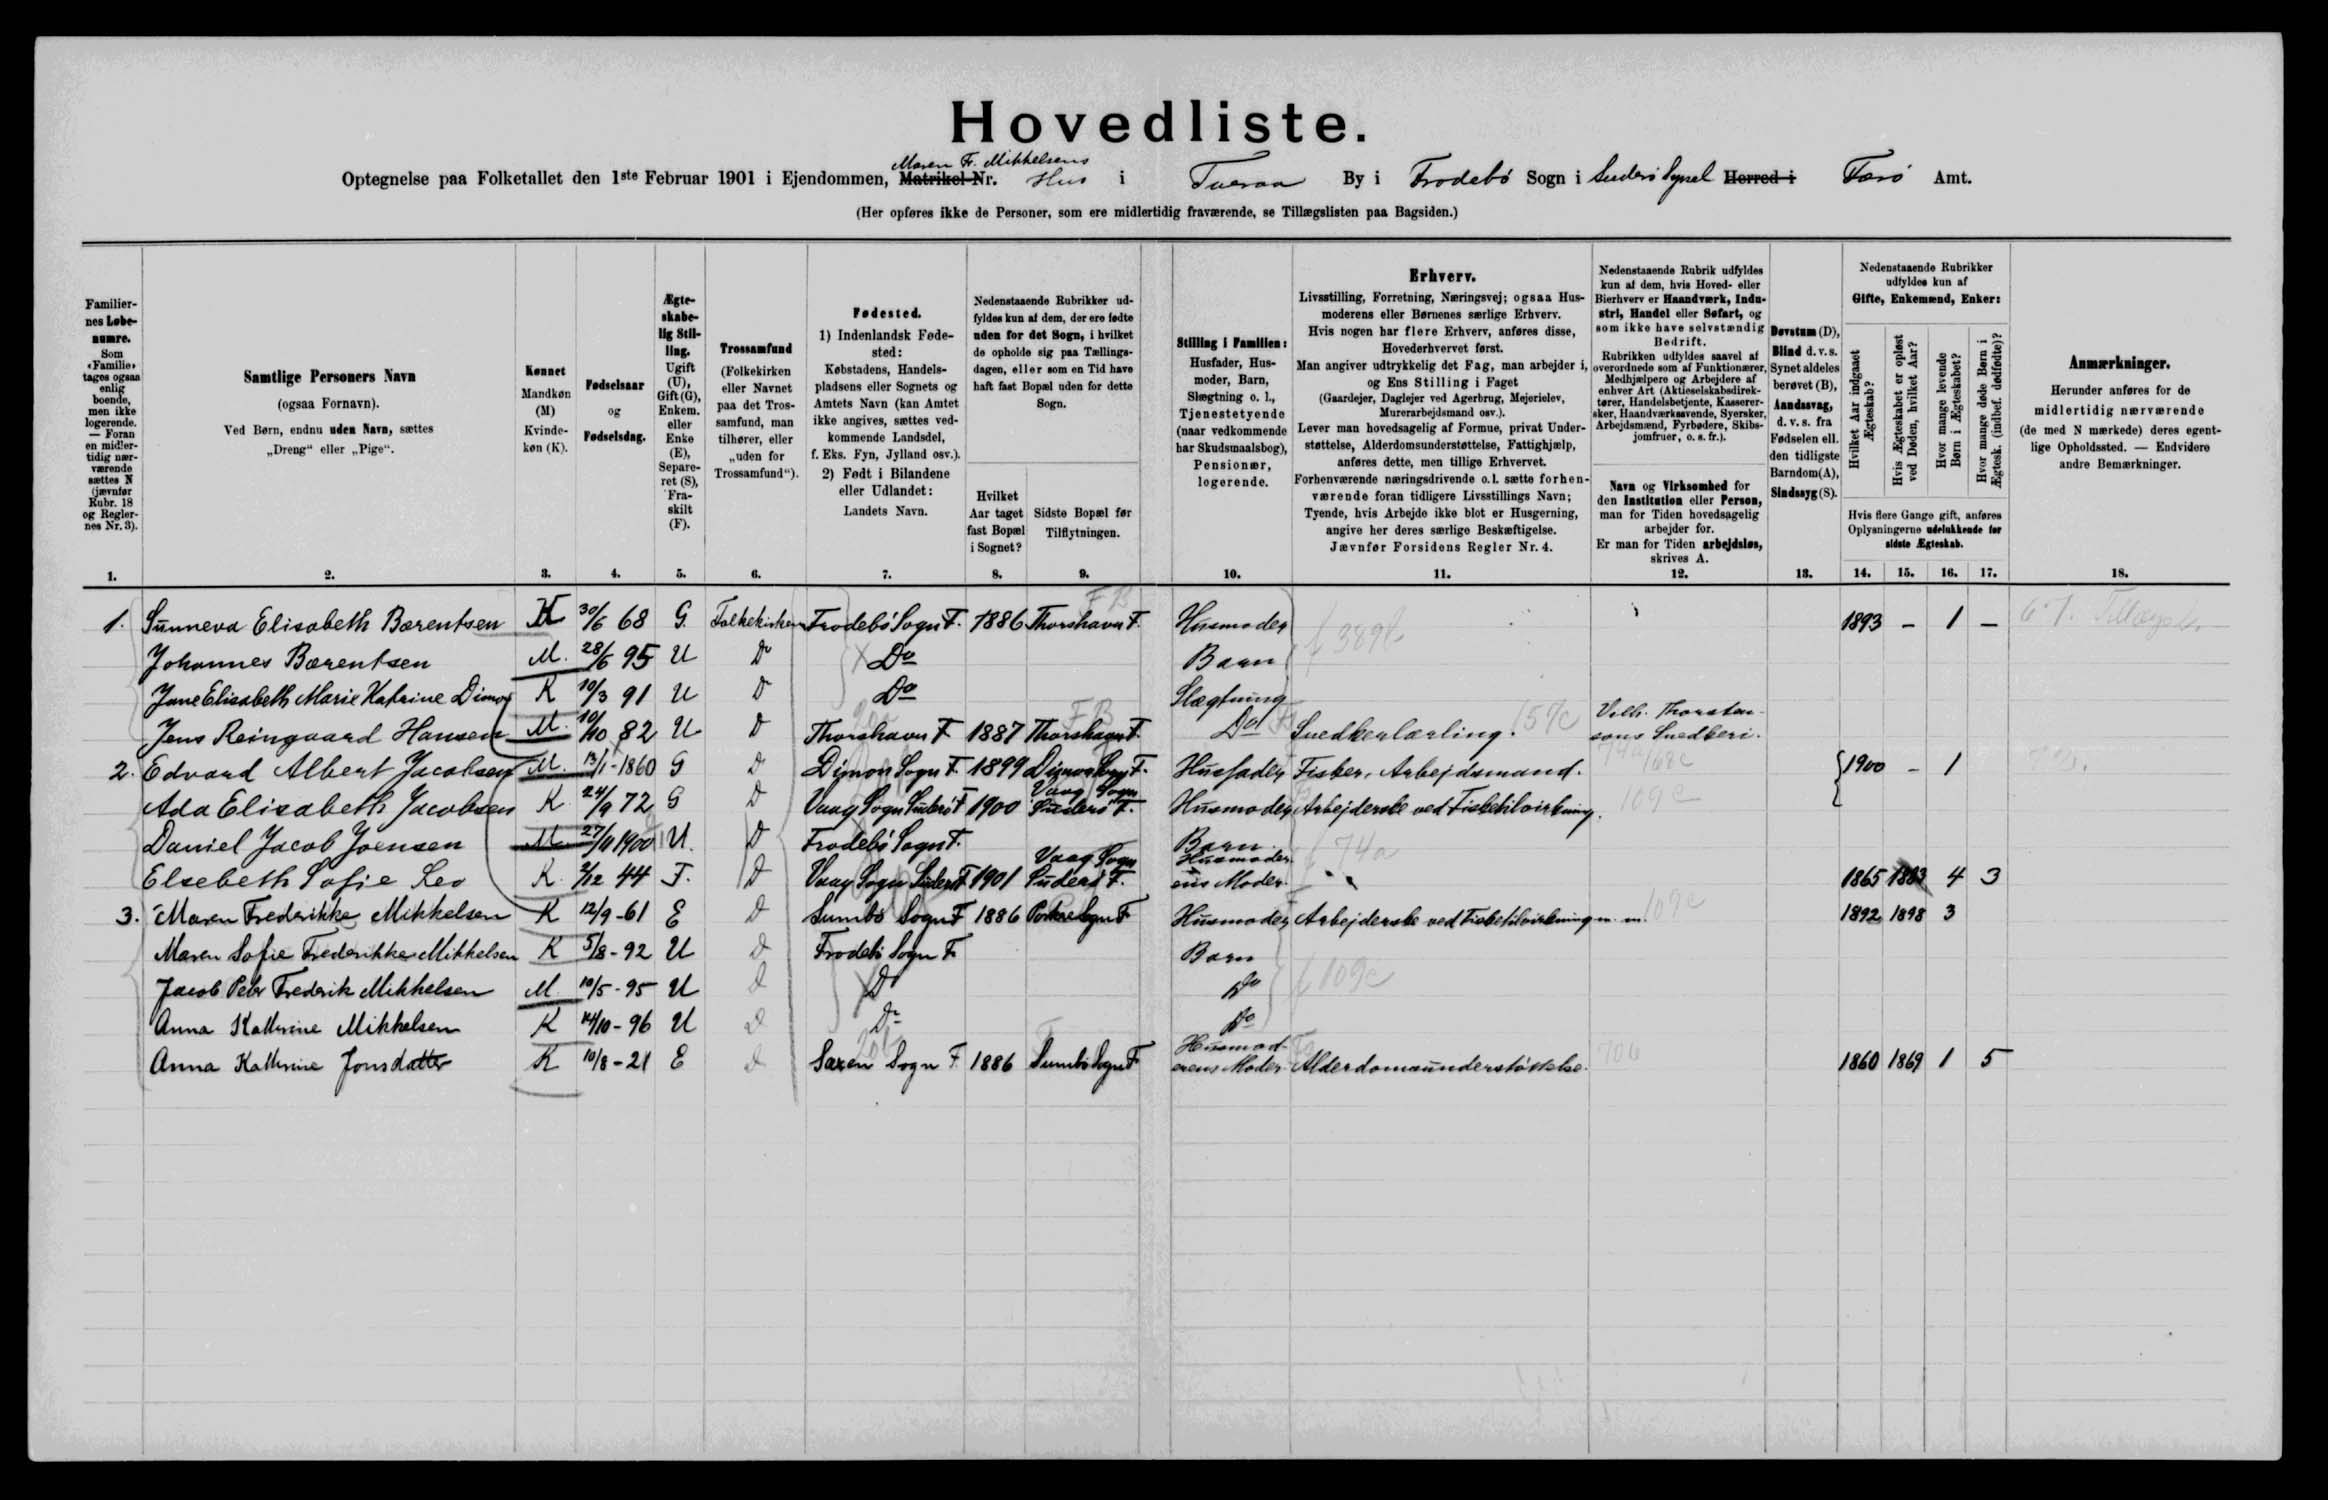 Hovedliste.
Maren Fr. Mikkelsens
Optegnelse paa Folketallet den 1ste Februar 1901 i Ejendommen, Matrikel-Nr. Hus i Tveraa By i Frodebø Sogn i Suderø Syssel Herred i Færø Amt.
(Her opføres ikke de Personer, som ere midlertidig fraværende, se Tillægslisten paa Bagsiden.)
Familier-
nes Løbe-
numre.
Som
«Familie»
tages ogsaa
enlig
boende,
men ikke
logerende.
— Foran
en midler-
tidig nær-
værende
sættes N
(jævnfør
Rubr. 18
og Regler-
nes Nr. 3).
1.
Samtlige Personers Navn
(ogsaa Fornavn).
Ved Børn, endnu uden Navn, sættes
„Dreng" eller „Pige".
2.
Kønnet
Mandkøn
(M)
Kvinde-
køn (K).
3.
Fødselsaar
og
Fødselsdag.
4.
Ægte-
skabe-
lig Stil-
ling.
Ugift
(U),
Gift (G),
Enkem.
eller
Enke
(E),
Separe-
ret (S),
Fra-
skilt
(F).
5.
Trossamfund
(Folkekirken
eller Navnet
paa det Tros-
samfund, man
tilhører, eller
„uden for
Trossamfund").
6.
Fødested.
1) Indenlandsk Føde-
sted:
Købstadens, Handels-
pladsens eller Sognets og
Amtets Navn (kan Amtet
ikke angives, sættes ved-
kommende Landsdel,
f. Eks. Fyn, Jylland osv.).
2) Født i Bilandene
eller Udlandet:
Landets Navn.
7.
Nedenstaaende Rubrikker ud-
fyldes kun af dem, der ere fødte
uden for det Sogn, i hvilket
de opholde sig paa Tællings-
dagen, eller som en Tid have
haft fast Bopæl uden for dette
Sogn.
Hvilket
Aar taget
fast Bopæl
i Sognet?
8.
Sidste Bopæl før
Tilflytningen.
9.
Stilling i Familien:
Husfader, Hus-
moder, Barn,
Slægtning o. l.,
Tjenestetyende
(naar vedkommende
har Skudsmaalsbog),
Pensionær,
logerende.
10.
Erhverv.
Livsstilling, Forretning, Næringsvej; ogsaa Hus-
moderens eller Børnenes særlige Erhverv.
Hvis nogen har flere Erhverv, anføres disse,
Hovederhvervet først.
Man angiver udtrykkelig det Fag, man arbejder i,
og Ens Stilling i Faget
(Gaardejer, Daglejer ved Agerbrug, Mejerielev,
Murerarbejdsmand osv.).
Lever man hovedsagelig af Formue, privat Under-
støttelse, Alderdomsunderstøttelse, Fattighjælp,
anføres dette, men tillige Erhvervet.
Forhenværende næringsdrivende o. l. sætte forhen-
værende foran tidligere Livsstillings Navn;
Tyende, hvis Arbejde ikke blot er Husgerning,
angive her deres særlige Beskæftigelse.
Jævnfør Forsidens Regler Nr. 4.
11.
Nedenstaaende Rubrik udfyldes
kun af dem, hvis Hoved- eller
Bierhverv er Haandværk, Indu-
stri, Handel eller Søfart, og
som ikke have selvstændig
Bedrift.
Rubrikken udfyldes saavel af
overordnede som af Funktionærer,
Medhjælpere og Arbejdere af
enhver Art (Aktieselskabsdirek-
tører, Handelsbetjente, Kasserer-
sker, Haandværkssvende, Syersker,
Arbejdsmænd, Fyrbødere, Skibs-
jomfruer, o. s. fr.).
Navn og Virksomhed for
den Institution eller Person,
man for Tiden hovedsagelig
arbejder for.
Er man for Tiden arbejdsløs,
skrives A.
12.
Døvstum (D),
Blind d. v. s.
Synet aldeles
berøvet (B),
Aandssvag,
d. v. s. fra
Fødselen ell.
den tidligste
Barndom (A),
Sindssyg (S).
13.
Nedenstaaende Rubrikker
udfyldes kun af
Gifte, Enkemænd, Enker:
Hvilket Aar indgaaet
Ægteskab?
Hvis Ægteskabet er opløst
ved Døden, hvilket Aar?
Hvor mange levende
Børn i Ægteskabet?
Hvor mange døde Børn i
Ægtesk. (indbef. dødfødte)?
Hvis flere Gange gift, anføres
Oplysningerne udelukkende for
sidste Ægteskab.
14. 15. 16. 17.
Anmærkninger.
Herunder anføres for de
midlertidig nærværende
(de med N mærkede) deres egent-
lige Opholdssted. — Endvidere
andre Bemærkninger.
18.
1. Sunneva Elisabeth Bærentsen K 30/6 68 G. Folkekirken Frodebø Sogn F. 1886 Thorshavn F. Husmoder 1893 – 1 –
Johannes Bærentsen M. 28/6 95 U Do Do Barn
Jane Elisabeth Marie Katrine Dimon K 10/3 91 U D Do Slægtning
Jens Reingaard Hansen M. 10/10 82 U D Thorshavn F 1887 Thorshavn F. Do Snedkerlærling. Vilh. Thorsten-
sons Snedkeri.
2. Edvard Albert Jacobsen M. 13/1-1860 G D Dimon Sogn F. 1899 Dimon Sogn F. Husfader Fisker, Arbejdsmand. 1900 – 1
Ada Elisabeth Jacobsen K. 24/9 72 G D Vaag Sogn Suderø F 1900 Vaag Sogn Suderø F. Husmoder Arbejderske ved Fisketilvirkning.
Daniel Jacob Joensen M 27/11 1900 U. D Frodebø Sogn F. Barn
Elsebeth Sofie Leo K. 2/12 44 F. D Vaag Sogn Suderø F 1901 Vaag Sogn Suderø F. Husmoder-
ens Moder. 1865 1883 4 3
3. Maren Frederikke Mikkelsen K 12/9-61 E D Sumbø Sogn F 1886 Porkere Sogn F Husmoder Arbejderske ved Fisketilvirkning m. m. 1892 1898 3
Maren Sofie Frederikke Mikkelsen K 5/8-92 U D Frodebø Sogn F Barn
Jacob Peter Frederik Mikkelsen M. 10/5-95 U D Do Do
Anna Kathrine Mikkelsen K 14/10-96 U D Do Do
Anna Kathrine Jonsdatter K 10/8-21 E D Saxen Sogn F. 1886 Sumbø Sogn F Husmod-
erens Moder. Alderdomsunderstøttelse. 1860 1869 1 5